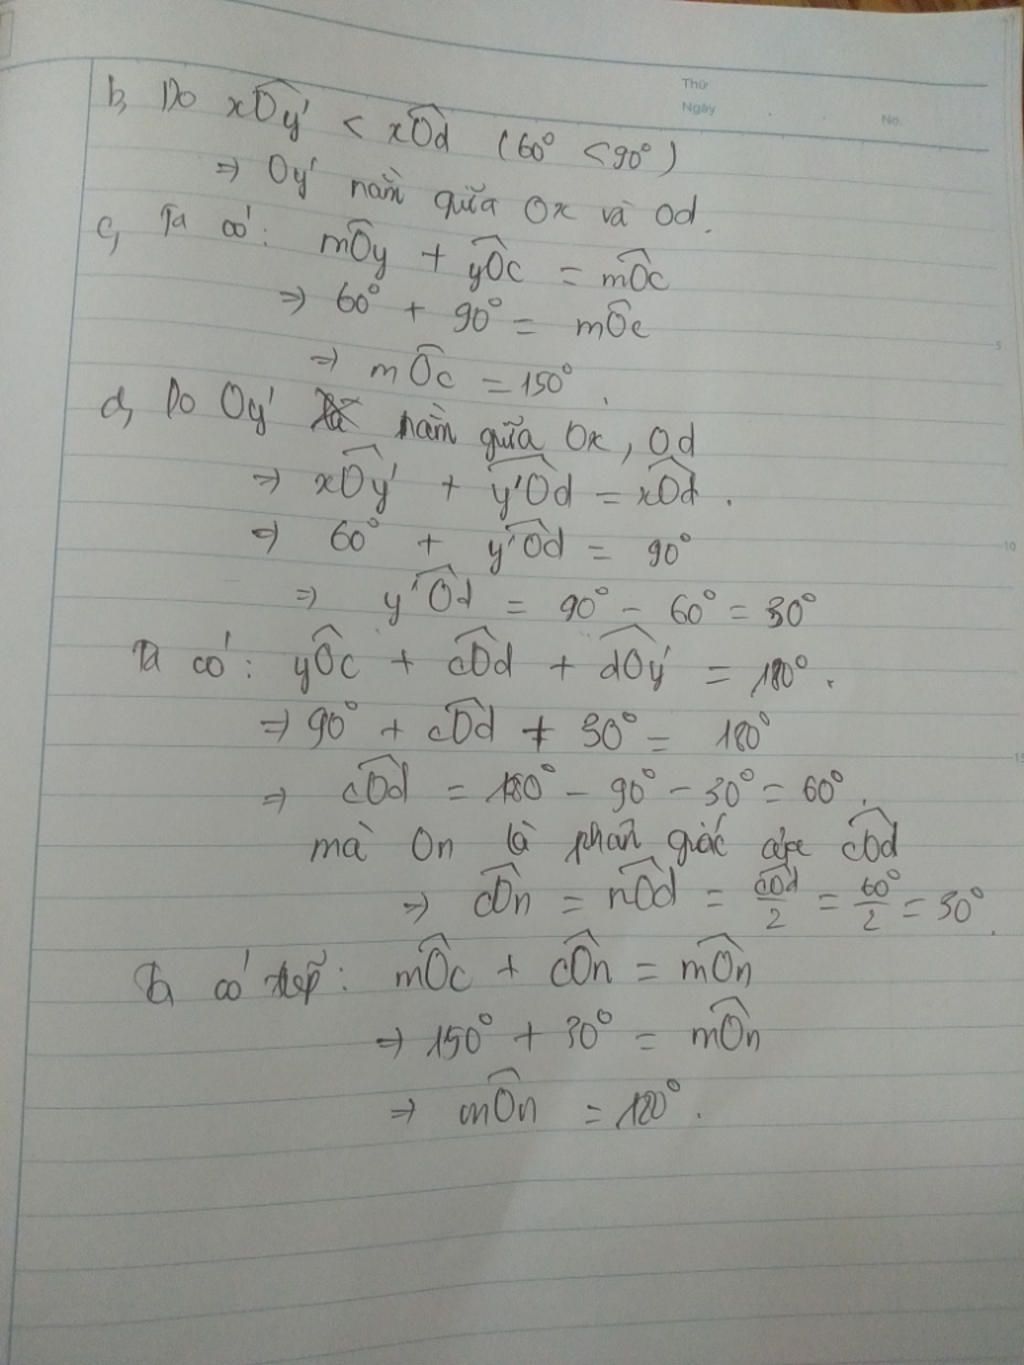 Thứ
Ngày
No.
b, Do xÔy' < xÔd (60° < 90°)
=> Oy' nằm giữa Ox và Od.
c, Ta có: mÔy + yÔc = mÔc
=> 60° + 90° = mÔc
=> mÔc = 150°.
d, Do Oy' nằm giữa Ox, Od
=> xÔy' + y'Ôd = xÔd.
=> 60° + y'Ôd = 90°
=> y'Ôd = 90° - 60° = 30°
Ta có: yÔc + cÔd + dÔy' = 180°.
=> 90° + cÔd + 30° = 180°
=> cÔd = 180° - 90° - 30° = 60°.
mà On là phân giác của cÔd
=> cÔn = nÔd = cÔd/2 = 60°/2 = 30°.
Ta có tiếp: mÔc + cÔn = mÔn
=> 150° + 30° = mÔn
=> mÔn = 180°.
5
10
15